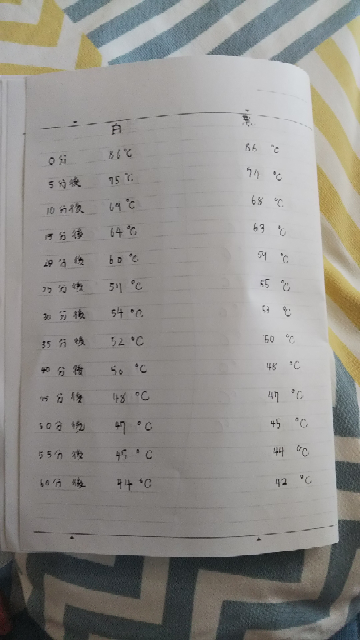 白 黒
0分 86℃ 86℃
5分後 75℃ 77℃
10分後 69℃ 68℃
15分後 64℃ 63℃
20分後 60℃ 59℃
25分後 57℃ 55℃
30分後 54℃ 53℃
35分後 52℃ 50℃
40分後 50℃ 48℃
45分後 48℃ 47℃
50分後 47℃ 45℃
55分後 45℃ 44℃
60分後 44℃ 42℃